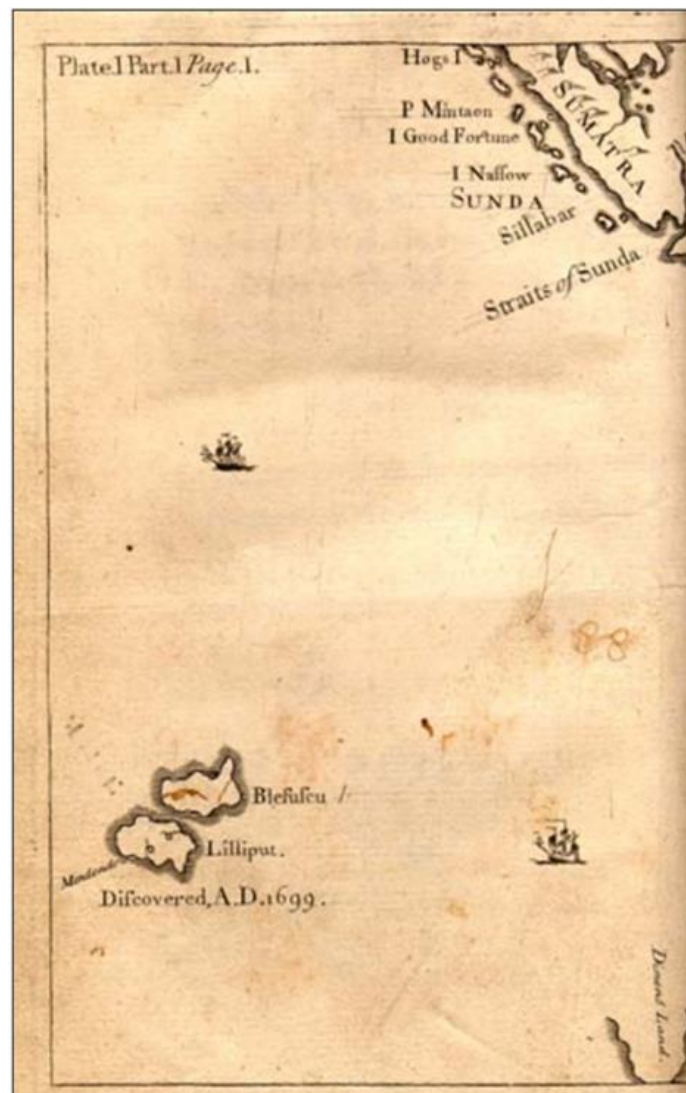 Plate.I Part.I Page.I.
Hogs I
P Mintaon
I Good Fortune
I Naſſow
SUNDA
SUMATRA
Sillabar
Straits of Sunda
88
Blefuſcu
Lilliput.
Diſcovered, A.D. 1699.
Dimens Land.